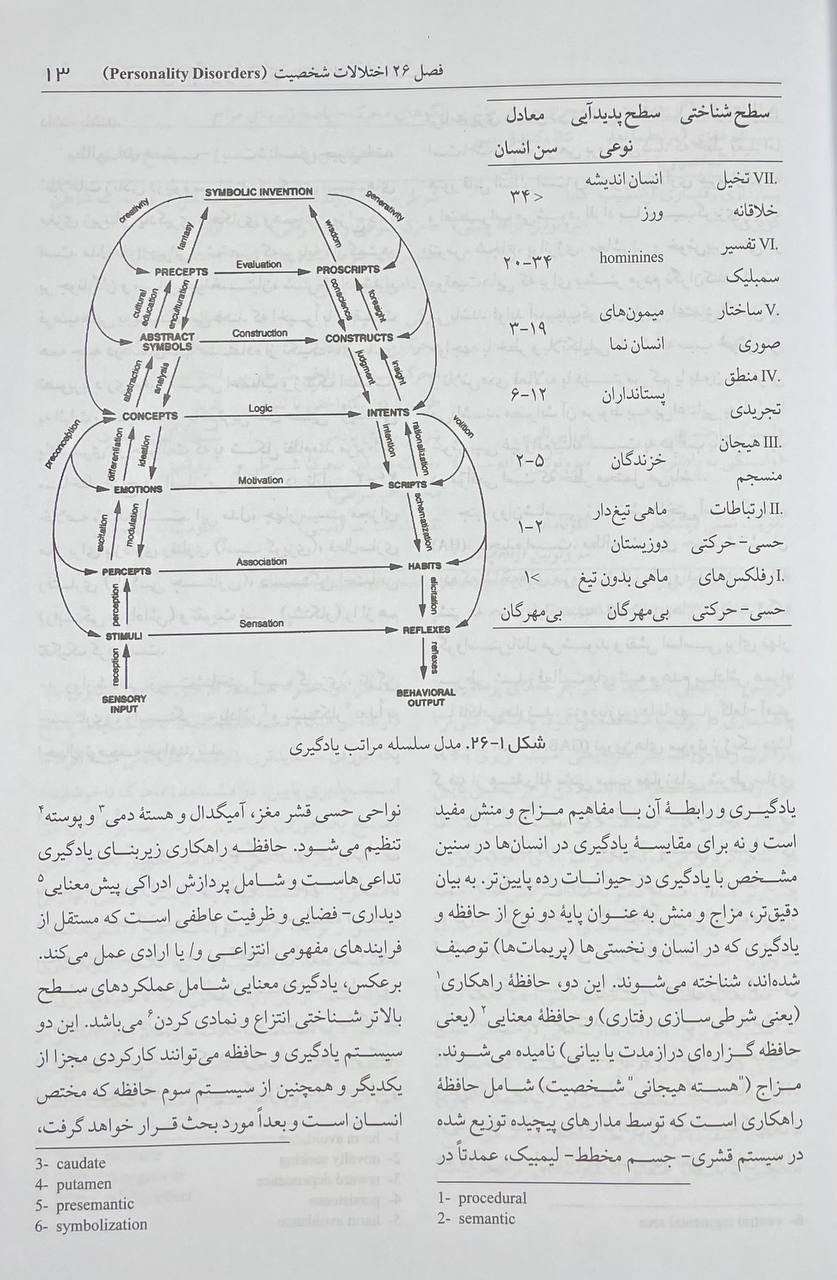 فصل ۲۶ اختلالات شخصیت (Personality Disorders) ۱۳
سطح شناختی سطح پدیدآیی معادل
نوعی سن انسان
VII. تخیل انسان اندیشه >۳۴
خلاقانه ورز
VI. تفسیر hominines ۲۰-۳۴
سمبلیک
V. ساختار میمون‌های ۳-۱۹
صوری انسان نما
IV. منطق پستانداران ۶-۱۲
تجریدی
III. هیجان خزندگان ۲-۵
منسجم
II. ارتباطات ماهی تیغ‌دار ۱-۲
حسی- حرکتی دوزیستان
I. رفلکس‌های ماهی بدون تیغ <۱
حسی- حرکتی بی‌مهرگان بی‌مهرگان
SYMBOLIC INVENTION
creativity
generativity
fantasy
wisdom
PRECEPTS
Evaluation
PROSCRIPTS
cultural education
enculturation
conscience
foresight
ABSTRACT SYMBOLS
Construction
CONSTRUCTS
abstraction
analysis
judgment
insight
CONCEPTS
Logic
INTENTS
preconception
volition
differentiation
ideation
intention
rationalization
EMOTIONS
Motivation
SCRIPTS
excitation
modulation
schematization
PERCEPTS
Association
HABITS
perception
elicitation
STIMULI
Sensation
REFLEXES
reception
reflexes
SENSORY INPUT
BEHAVIORAL OUTPUT
شکل ۱-۲۶. مدل سلسله مراتب یادگیری
یادگیری و رابطهٔ آن با مفاهیم مزاج و منش مفید
است و نه برای مقایسهٔ یادگیری در انسان‌ها در سنین
مشخص با یادگیری در حیوانات رده پایین‌تر. به بیان
دقیق‌تر، مزاج و منش به عنوان پایهٔ دو نوع از حافظه و
یادگیری که در انسان و نخستی‌ها (پریمات‌ها) توصیف
شده‌اند، شناخته می‌شوند. این دو، حافظهٔ راهکاری۱
(یعنی شرطی‌سازی رفتاری) و حافظهٔ معنایی۲ (یعنی
حافظه گزاره‌ای درازمدت یا بیانی) نامیده می‌شوند.
مزاج ("هسته هیجانی" شخصیت) شامل حافظهٔ
راهکاری است که توسط مدارهای پیچیده توزیع شده
در سیستم قشری- جسم مخطط- لیمبیک، عمدتاً در
1- procedural
2- semantic
نواحی حسی قشر مغز، آمیگدال و هستهٔ دمی۳ و پوسته۴
تنظیم می‌شود. حافظه راهکاری زیربنای یادگیری
تداعی‌هاست و شامل پردازش ادراکی پیش‌معنایی۵
دیداری- فضایی و ظرفیت عاطفی است که مستقل از
فرایندهای مفهومی انتزاعی و/ یا ارادی عمل می‌کند.
برعکس، یادگیری معنایی شامل عملکردهای سطح
بالاتر شناختی انتزاع و نمادی کردن۶ می‌باشد. این دو
سیستم یادگیری و حافظه می‌توانند کارکردی مجزا از
یکدیگر و همچنین از سیستم سوم حافظه که مختص
انسان است و بعداً مورد بحث قرار خواهد گرفت،
3- caudate
4- putamen
5- presemantic
6- symbolization